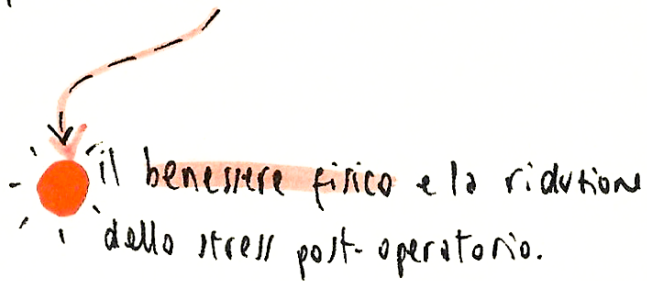 il benessere fisico e la riduzione
dello stress post-operatorio.